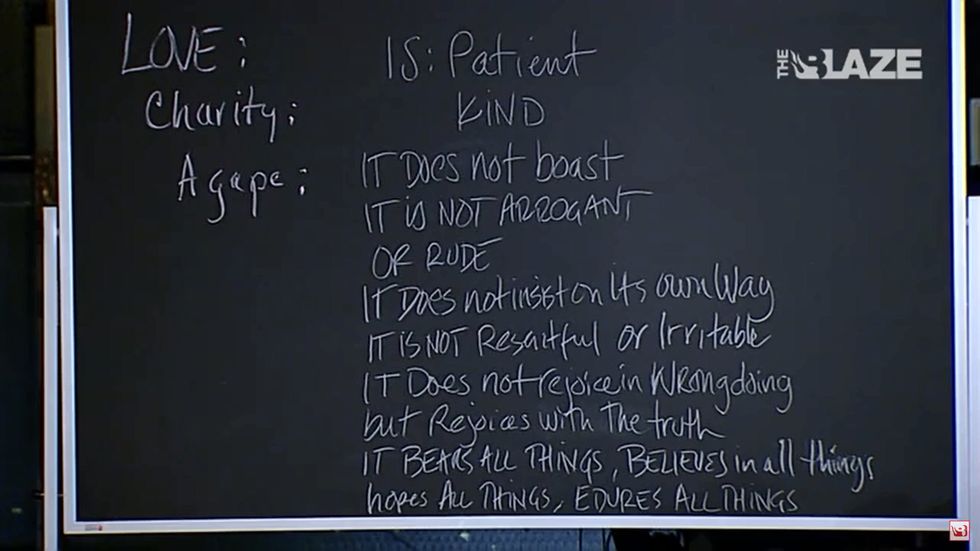 LOVE: IS: Patient
Charity: KIND
Agape: IT DOES not boast
IT iS NOT ARROGANT
OR RUDE
IT DOES not insist on Its own Way
IT iS NOT Resentful or Irritable
IT Does not rejoice in Wrongdoing
but Rejoices with The truth
IT BEARS ALL THINGS, BELIEVES in all things
hopes ALL THINGS, EDURES ALL THINGS
THE BLAZE